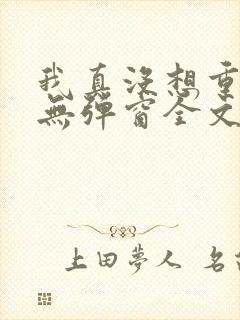 我真沒想重
無彈窗全文
上田夢人 名